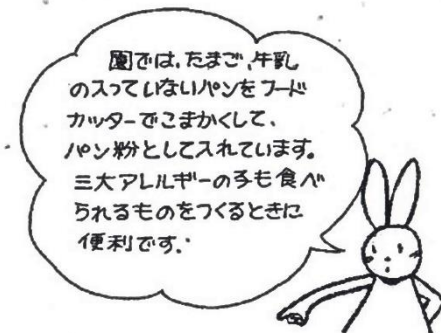 園では、たまご、牛乳
の入っていないパンをフード
カッターでこまかくして、
パン粉として入れています。
三大アレルギーの子も食べ
られるものをつくるときに
便利です。